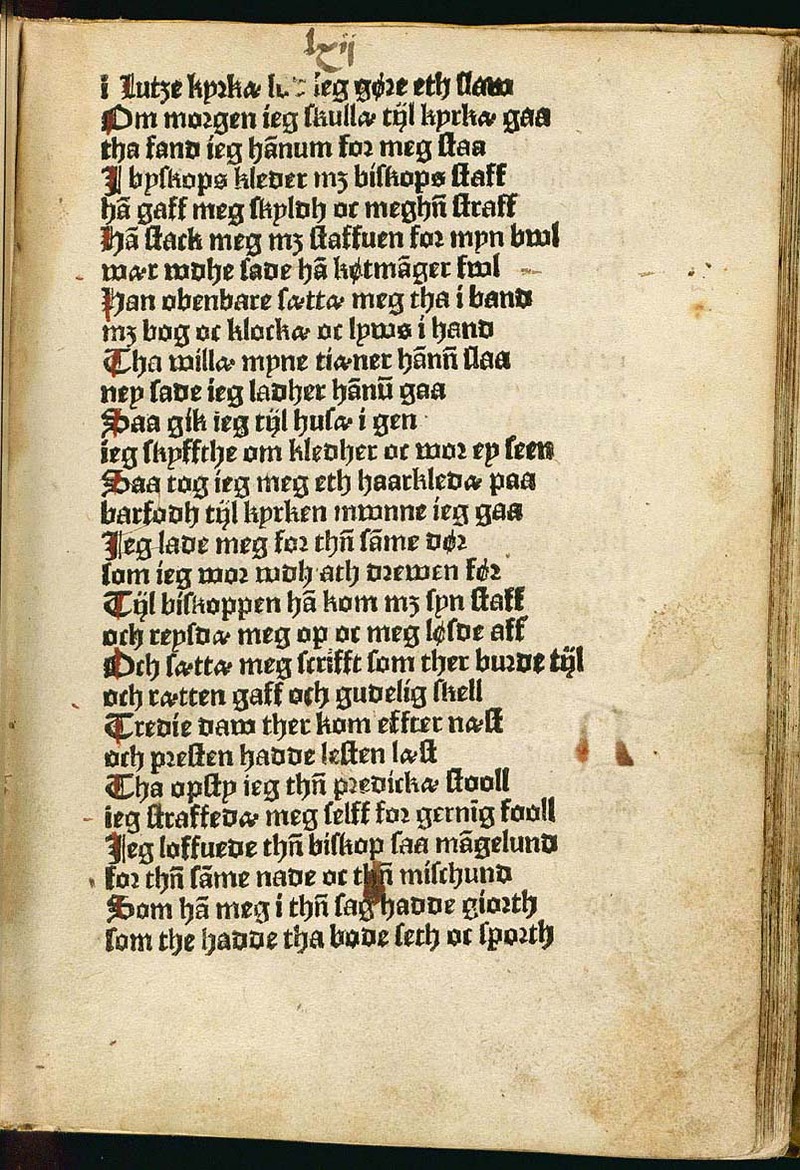 lxij
i Lutze kyrkæ ieg gøre eth slaw
Om morgen ieg skullæ tijl kyrkæ gaa
tha fand ieg hānum for meg staa
J byskops kleder mꝫ biskops staff
hā gaff meg skyldh oc meghn̄ straff
Hā stack meg mꝫ staffuen for myn bwl
wær wdhe sade hā køtmāger fwl
Han obenbare sættæ meg tha i band
mꝫ bog oc klockæ oc lyws i hand
Tha willæ myne tiæner hānn̄ slaa
ney sade ieg ladher hānū gaa
Saa gik ieg tijl husæ i gen
ieg skyffthe om kledher oc wor ey seen
Saa tog ieg meg eth haarkledæ paa
barfodh tijl kyrken mwnne ieg gaa
Jeg lade meg for thn̄ sāme dør
som ieg wor wdh ath drewen før
Tijl biskoppen hā kom mꝫ syn staff
och reysdæ meg op oc meg løsde aff
Och sættæ meg scrifft som ther burde tijl
och rætten gaff och gudelig skell
Tredie daw ther kom effter næst
och presten hadde lesten læst
Tha opsty ieg thn̄ predickæ stooll
ieg straffedæ meg selff for gernīg fooll
Jeg loffuede thn̄ biskop saa māgelund
for thn̄ sāme nade oc thn̄ mischund
Som hā meg i thn̄ sag hadde giorth
som the hadde tha bode seth oc sporth